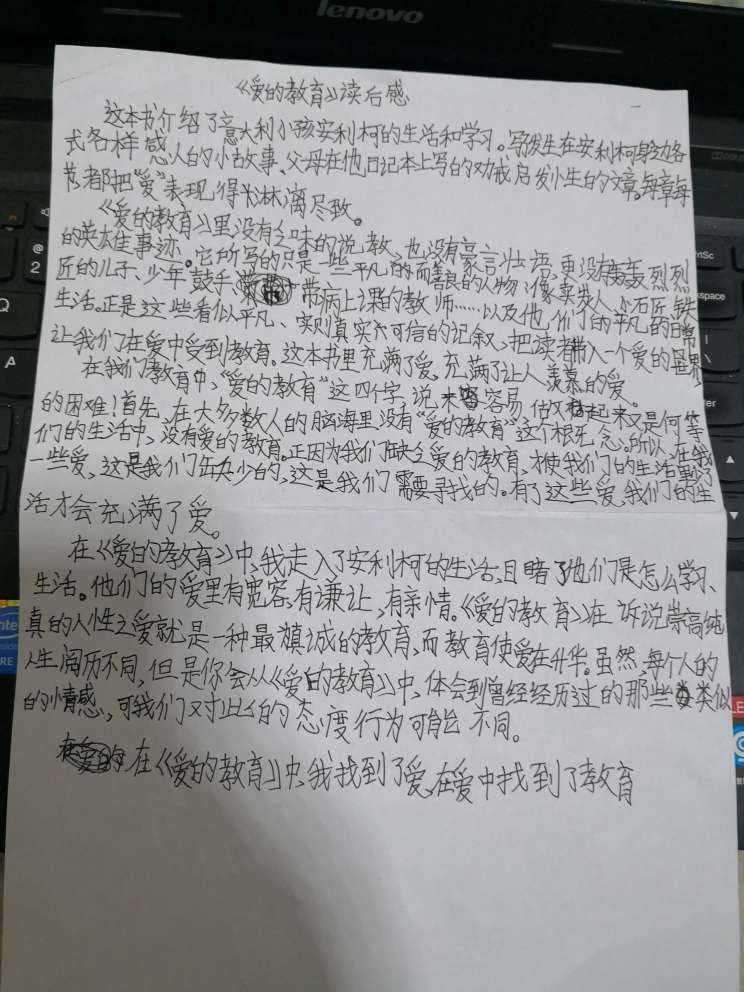 lenovo
《爱的教育》读后感
这本书介绍了意大利小孩安利柯的生活和学习。写发生在安利柯身边各
式各样感人的小故事、父母在他日记本上写的劝戒启发小生的文章。每章每
节都把“爱”表现得淋漓尽致。
《爱的教育》里没有乏味的说教,也没有豪言壮语,更没有轰轰烈烈
的英雄事迹。它所写的只是一些平凡的而善良的人物:像卖炭人、小石匠、铁
匠的儿子、少年鼓手、带病上课的教师……以及他们的平凡的日常
生活。正是这些看似平凡、实则真实可信的记叙,把读者带入一个爱的世界
让我们在爱中受到教育。这本书里充满了爱,充满了让人羡慕的爱。
在我们教育中,“爱的教育”这四个字,说来容易,做起来又是何等
的困难!首先,在大多数人的脑海里没有“爱的教育”这个概念。所以,在我
们的生活中,没有爱的教育。正因为我们缺乏爱的教育,才使我们的生活里少了
一些爱,这是我们缺少的,这是我们需要寻找的。有了这些爱,我们的生
活才会充满了爱。
在《爱的教育》中,我走入了安利柯的生活,目睹了他们是怎么学习、
生活。他们的爱里有宽容,有谦让,有亲情。《爱的教育》在诉说崇高纯
真的人性之爱就是一种最真诚的教育,而教育使爱在升华。虽然,每个人的
人生阅历不同,但是你会从《爱的教育》中,体会到曾经经历过的那些类似
的小情感,可我们对此的态度行为可能不同。
在《爱的教育》中,我找到了爱,在爱中找到了教育